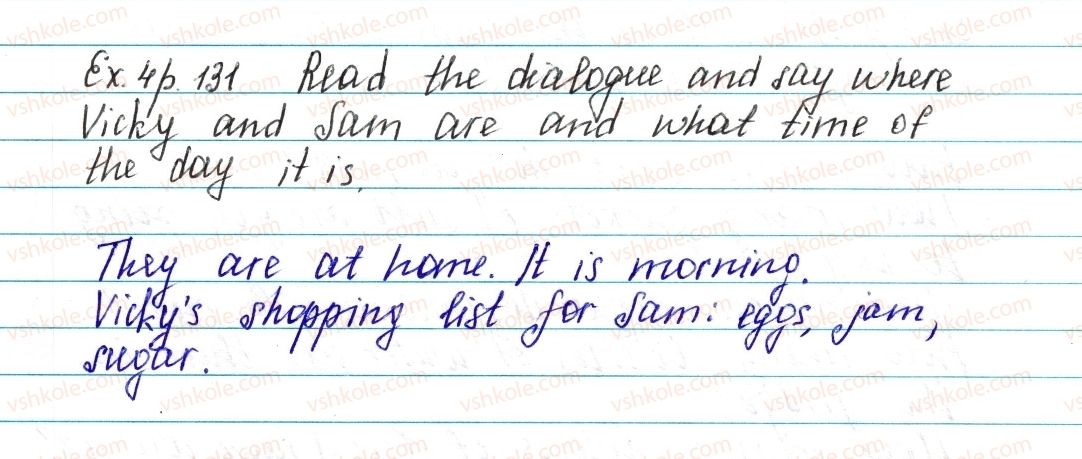 Ex. 4p. 131 Read the dialogue and say where
Vicky and Sam are and what time of
the day it is.
They are at home. It is morning.
Vicky's shopping list for Sam: eggs, jam,
sugar.